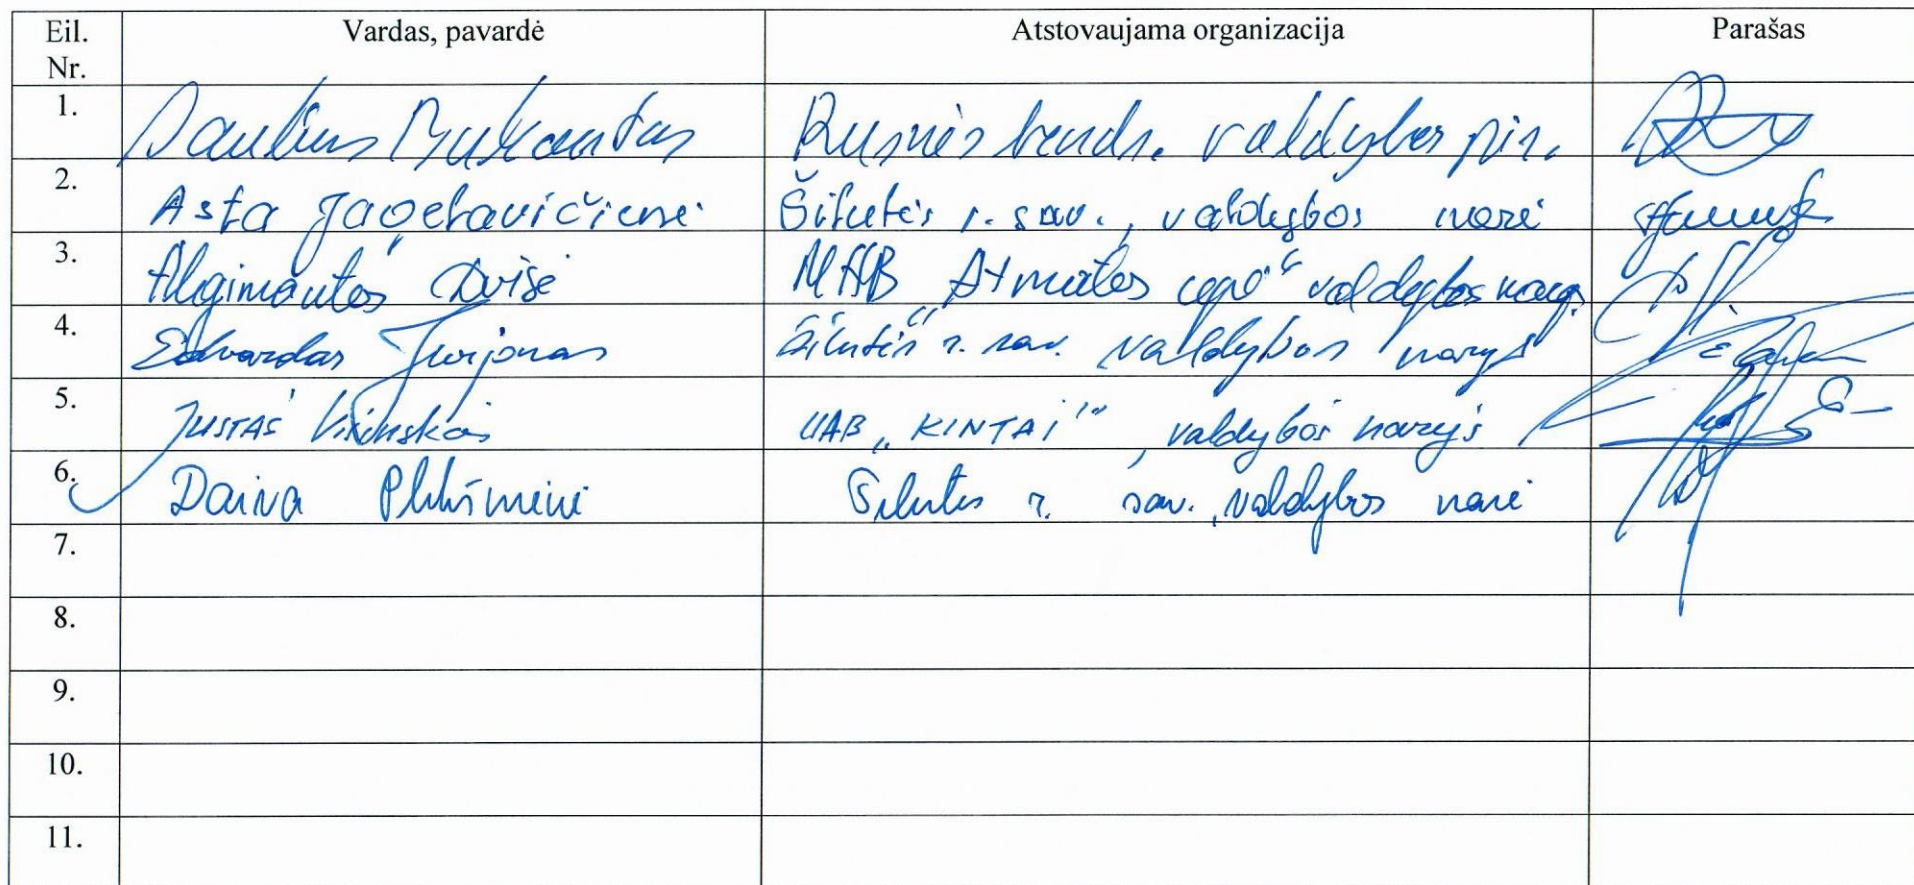 Eil. Nr. Vardas, pavardė Atstovaujama organizacija Parašas
1. Saulius Rusnės bendr. valdybos pirm.
2. Asta Jagelavičienė Šilutės r. sav., valdybos narė
3. Algimantas Dvišė valdybos narys
4. Edvardas Jurjonas Šilutės r. sav. valdybos narys
5. JUSTAS UAB „KINTAI", valdybos narys
6. Daina Šilutės r. sav., valdybos narė
7.
8.
9.
10.
11.